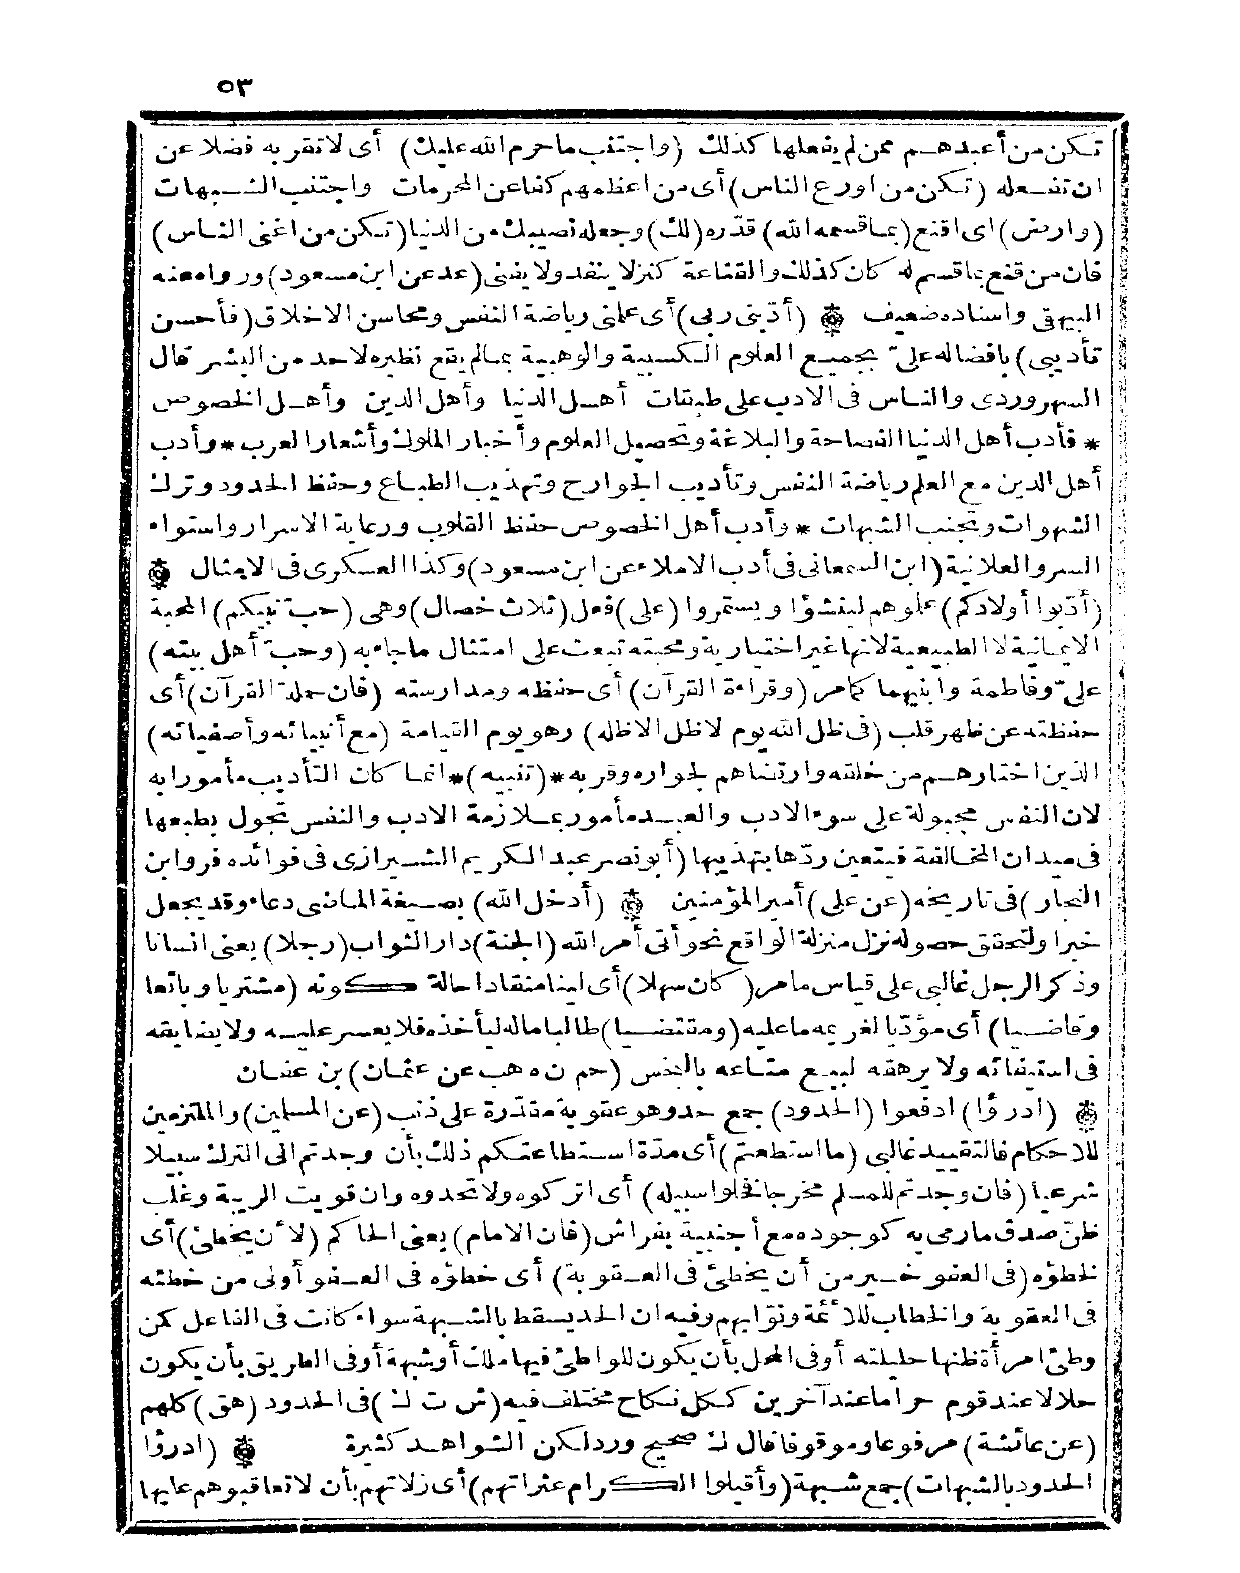 ٥٣
تكن من أعبدهم ممن لم يفعلها كذلك (واجتنب ما حرم الله عليك) أى لا تقربه فضلا عن
ان تفعله (تكن من اورع الناس) أى من اعظمهم كفا عن المحرمات واجتنب الشبهات
(وارض) اى اقنع (بما قسمه الله) قدّره (لك) وجعله نصيبك من الدنيا (تكن من اغنى الناس)
فان من قنع بما قسم له كان كذلك والقناعة كنز لا ينفد ولا يفنى (عد عن ابن مسعود) ورواه عنه
البيهقى واسناده ضعيف ۞ (أدّبنى ربى) أى علمنى رياضة النفس ومحاسن الاخلاق (فأحسن
تأديبى) بافضاله علىّ بجميع العلوم الكسبية والوهبية بما لم يقع نظيره لاحد من البشر قال
السهروردى والناس فى الادب على طبقات أهل الدنيا وأهل الدين وأهل الخصوص
* فأدب أهل الدنيا الفصاحة والبلاغة وتحصيل العلوم وأخبار الملوك وأشعار العرب * وأدب
أهل الدين مع العلم رياضة النفس وتأديب الجوارح وتهذيب الطباع وحفظ الحدود وترك
الشهوات وتجنب الشبهات * وأدب أهل الخصوص حفظ القلوب ورعاية الاسرار واستواء
السر والعلانية (ابن السمعانى فى أدب الاملاء عن ابن مسعود) وكذا العسكرى فى الامثال ۞
(أدّبوا أولادكم) علموهم لينشؤا ويستمروا (على) فعل (ثلاث خصال) وهى (حب نبيكم) المحبة
الايمانية لا الطبيعية لانها غير اختيارية ومحبته تبعث على امتثال ما جاء به (وحب أهل بيته)
علىّ وفاطمة وابنيهما كما مر (وقراءة القرآن) أى حفظه ومدارسته (فان حملة القرآن) أى
حفظته عن ظهر قلب (فى ظل الله يوم لا ظل الا ظله) وهو يوم القيامة (مع أنبيائه وأصفيائه)
الذين اختارهم من خلقه وارتضاهم لجواره وقربه * (تنبيه) * انما كان التأديب مأمورا به
لان النفس مجبولة على سوء الادب والعبد مأمور بملازمة الادب والنفس تجول بطبعها
فى ميدان المخالفة فيتعين ردّها بتهذيبها (أبو نصر عبد الكريم الشيرازى فى فوائده فر وابن
النجار) فى تاريخه (عن على) أمير المؤمنين ۞ (أدخل الله) بصيغة الماضى دعاء وقد يجعل
خبرا ولتحقق حصوله نزل منزلة الواقع نحو أتى أمر الله (الجنة) دار الثواب (رجلا) يعنى انسانا
وذكر الرجل غالبى على قياس ما مر (كان سهلا) أى لينا منقادا حالة كونه (مشتريا وبائعا
وقاضيا) أى مؤدّيا لغريمه ما عليه (ومقتضيا) طالبا ماله ليأخذه فلا يعسر عليه ولا يضايقه
فى استيفائه ولا يرهقه لبيع متاعه بالبخس (حم ن ه هب عن عثمان) بن عفان
۞ (ادرؤا) ادفعوا (الحدود) جمع حد وهو عقوبة مقدّرة على ذنب (عن المسلمين) والملتزمين
للاحكام فالتقييد غالبى (ما استطعتم) أى مدّة استطاعتكم ذلك بأن وجدتم الى الترك سبيلا
شرعيا (فان وجدتم للمسلم مخرجا فخلوا سبيله) أى اتركوه ولا تحدوه وان قويت الريبة وغلب
ظنّ صدق ما رمى به كوجوده مع أجنبية بفراش (فان الامام) يعنى الحاكم (لأن يخطئ) أى
لخطؤه (فى العفو خير من أن يخطئ فى العقوبة) أى خطؤه فى العفو أولى من خطئه
فى العقوبة والخطاب للائمة ونوّابهم وفيه ان الحد يسقط بالشبهة سواء كانت فى الفاعل كمن
وطئ امرأة ظنها حليلته أو فى المحل بأن يكون للواطئ فيها ملك أو شبهة أو فى الطريق بأن يكون
حلالا عند قوم حراما عند آخرين ككل نكاح مختلف فيه (ش ت ك) فى الحدود (هق) كلهم
(عن عائشة) مرفوعا وموقوفا قال ك صحيح ورد لكن الشواهد كثيرة ۞ (ادرؤا
الحدود بالشبهات) جمع شبهة (وأقيلوا الكرام عثراتهم) أى زلاتهم بأن لا تعاقبوهم عليها